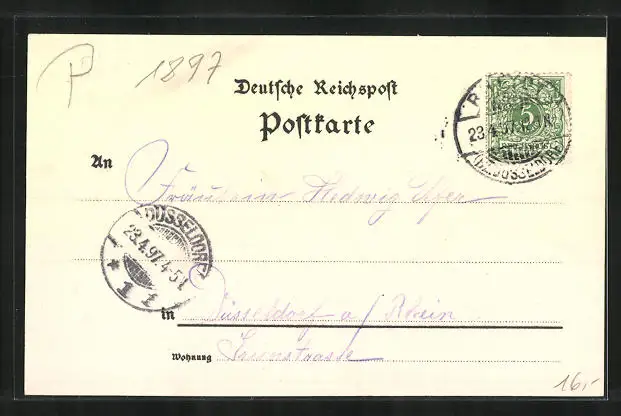 P 1897
Deutsche Reichspost
Postkarte
23.4.97
(BZ.DÜSSELDORF)
5
An
Fräulein Hedwig
DÜSSELDORF
23.4.97.4-5N
* 1 t
in Düsseldorf a/Rhein
Wohnung
16,-